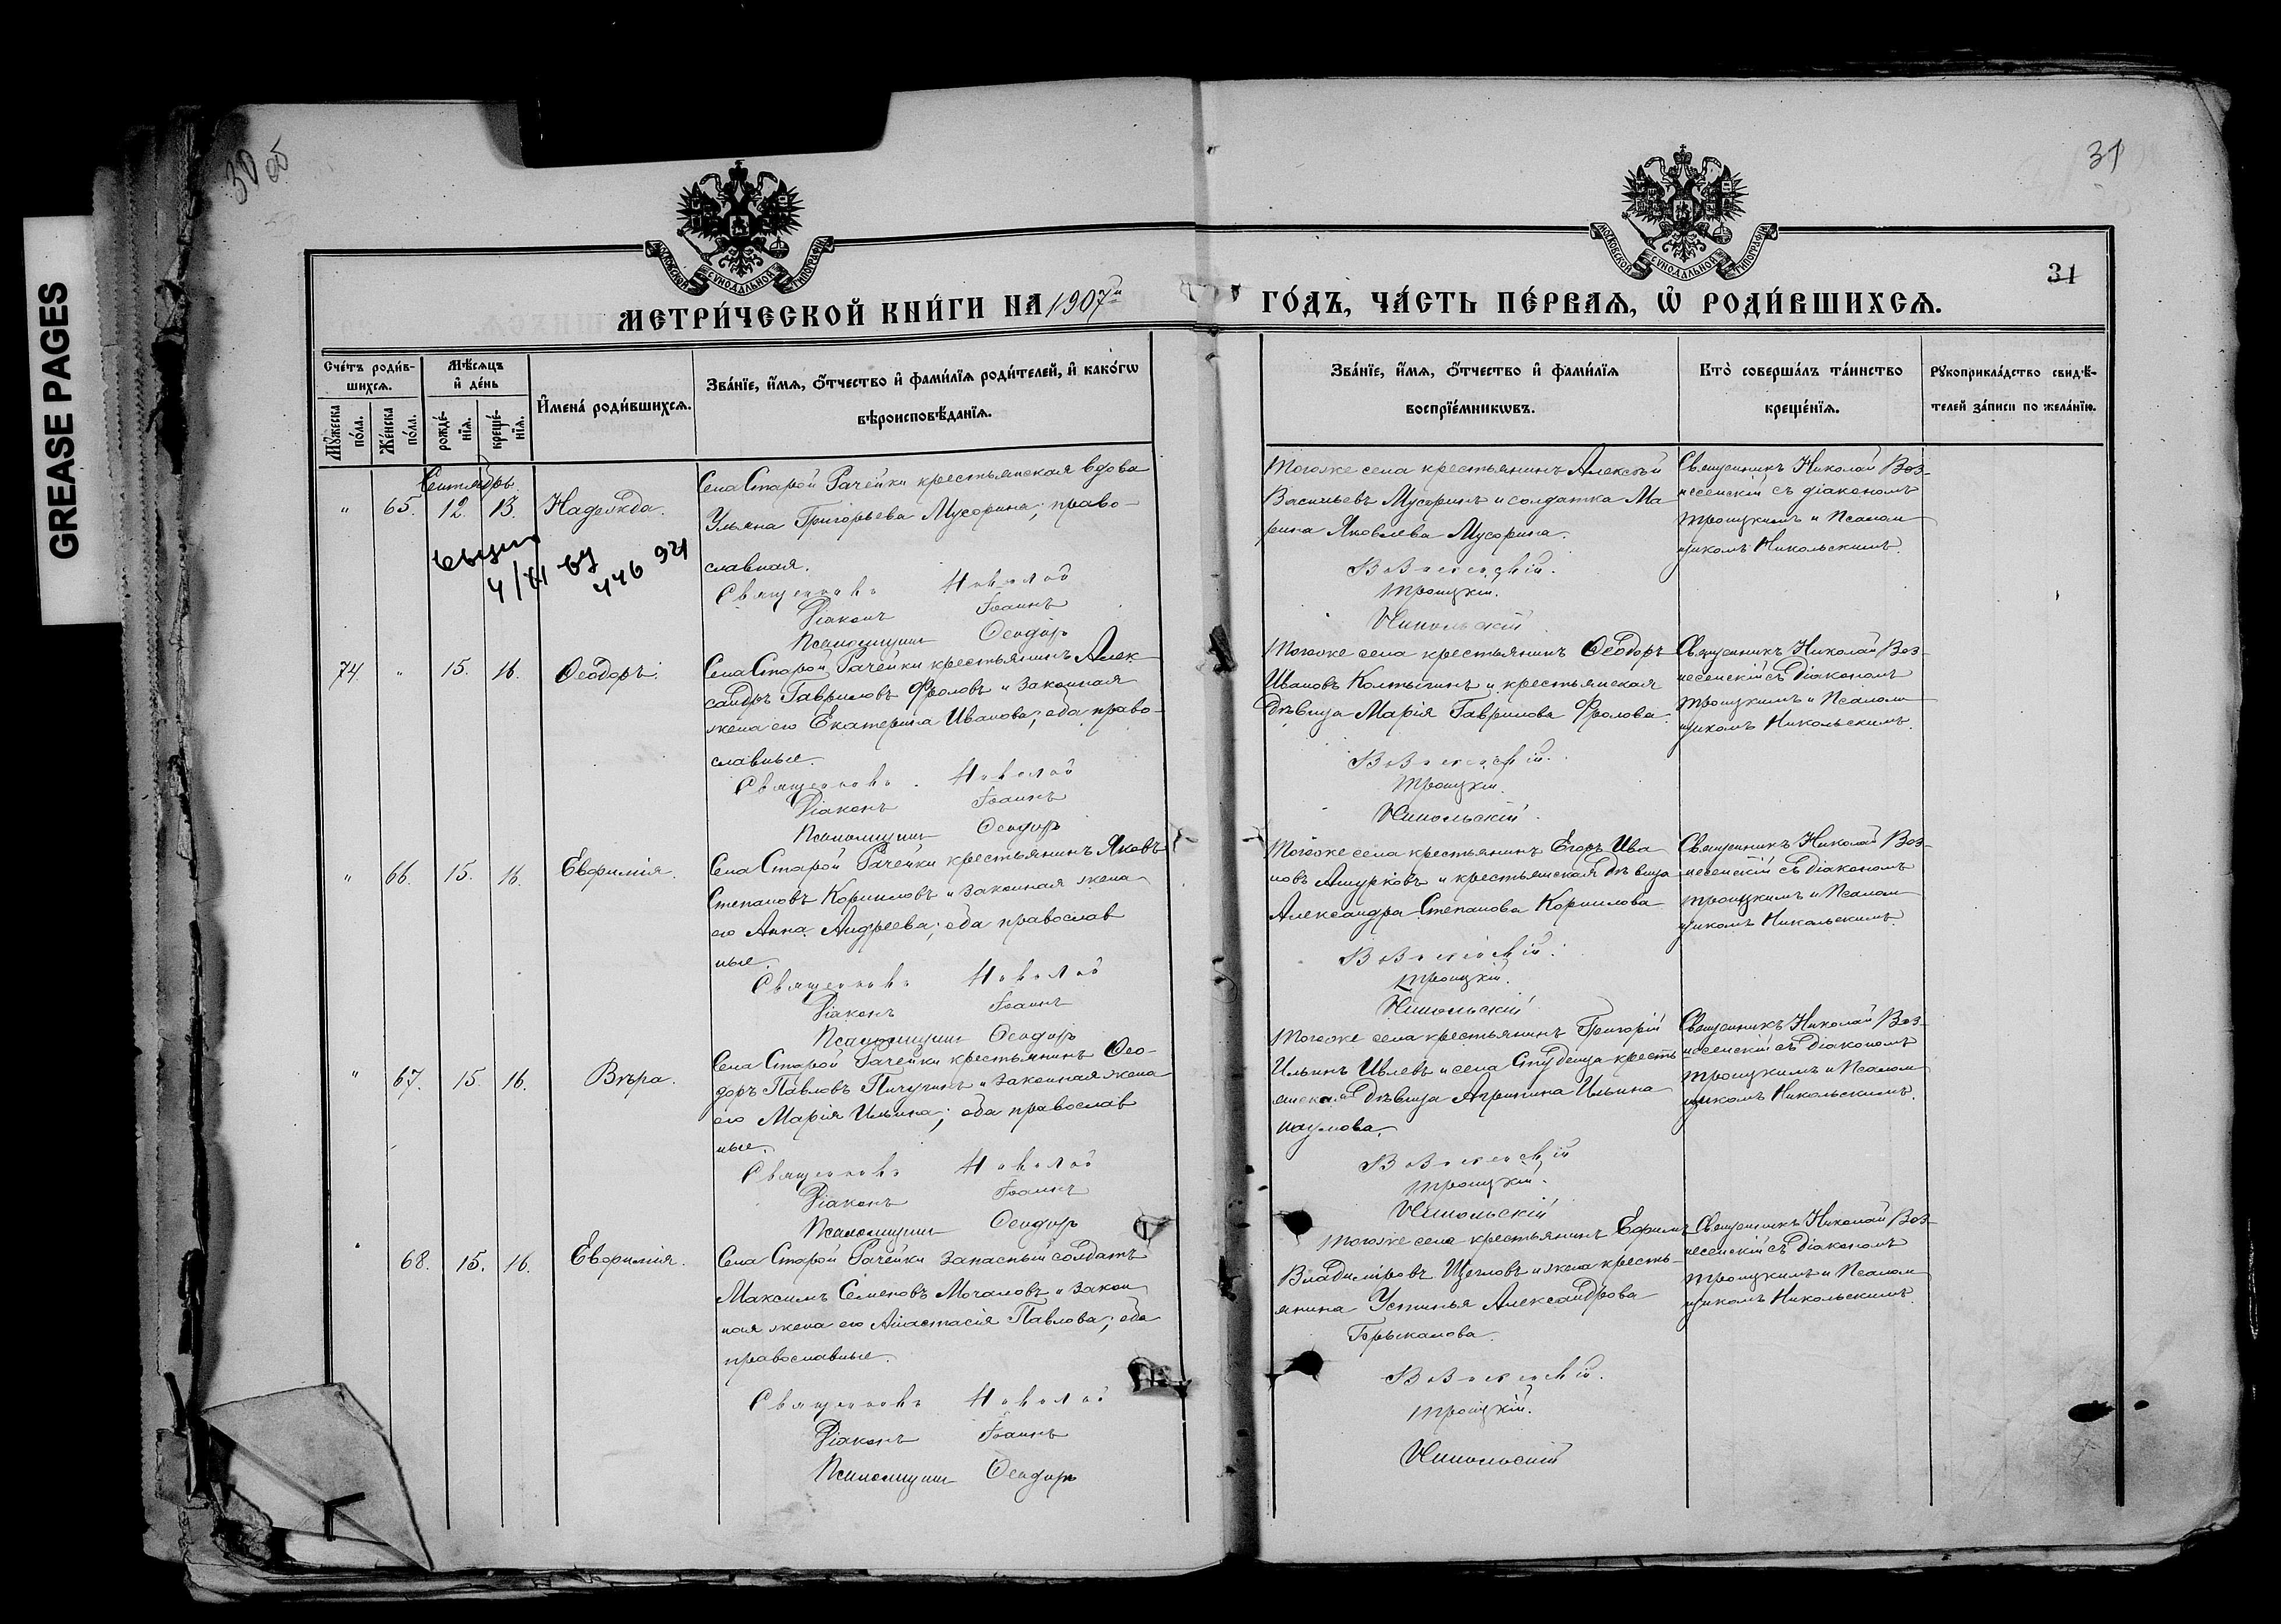 GREASE PAGES
30 об
31
МОСКОВСКОЙ СУНОДАЛЬНОЙ ТИПОГРАФІИ
МОСКОВСКОЙ СУНОДАЛЬНОЙ ТИПОГРАФІИ
31
МЕТРИ́ЧЕСКОЙ КНИ́ГИ НА 1907й
ГО́ДЪ, ЧА́СТЬ ПЕ́РВАѦ, Ѽ РОДИ́ВШИХСѦ.
Сче́тъ роди́в-
шихсѧ.
Мѣ́сѧцъ
и҆ де́нь
Мꙋ́жеска по́ла.
Же́нска по́ла.
рожде́-
нїѧ.
креще́-
нїѧ.
И҆мена́ роди́вшихсѧ.
Зва́нїе, и҆́мѧ, ѻ҆́тчество и҆ фами́лїѧ роди́телей, и҆ како́гѡ
вѣроисповѣ́данїѧ.
Зва́нїе, и҆́мѧ, ѻ҆́тчество и҆ фами́лїѧ
воспрїе́мникѡвъ.
Кто̀ соверша́лъ та́инство
креще́нїѧ.
Рꙋкоприкла́дство свидѣ́-
телей за́писи по жела́нїю.
Сентябрь.
" 65. 12. 13. Надежда.
Села Старой Рачейки крестьянская вдова
Ульяна Григорьева Мусорина, право-
славная.
4/VI
Священникъ Николай
Діаконъ Іоаннъ
Псаломщикъ Ѳеодоръ
Тогоже села крестьянинъ Алексѣй
Васильевъ Мусоринъ и солдатка Ма
рина Яковлева Мусорина.
Вознесенскій.
Троицкій.
Никольскій
Священникъ Николай Воз-
несенскій съ діакономъ
Троицкимъ и Псалом
щикомъ Никольскимъ.
74 " 15. 16. Ѳеодоръ.
Села Старой Рачейки крестьянинъ Алек
сандръ Гавриловъ Фроловъ и законная
жена его Екатерина Иванова; оба право-
славные.
Священникъ Николай
Діаконъ Іоаннъ
Псаломщикъ Ѳеодоръ
Тогоже села крестьянинъ Ѳеодоръ
Ивановъ Колтыгинъ и крестьянская
дѣвица Марія Гаврилова Фролова.
Вознесенскій.
Троицкій.
Никольскій
Священникъ Николай Воз-
несенскій съ Діакономъ
Троицкимъ и Псалом
щикомъ Никольскимъ.
" 66. 15. 16. Евфимія.
Села Старой Рачейки крестьянинъ Яковъ
Степановъ Корниловъ и законная жена
его Анна Андреева; оба православ
ные.
Священникъ Николай
Діаконъ Іоаннъ
Псаломщикъ Ѳеодоръ
Тогоже села крестьянинъ Егоръ Ива
новъ и крестьянская дѣвица
Александра Степанова Корнилова
Вознесенскій.
Троицкій.
Никольскій
Священникъ Николай Воз-
несенскій съ Діакономъ
Троицкимъ и Псалом
щикомъ Никольскимъ.
" 67. 15. 16. Вѣра.
Села Старой Рачейки крестьянинъ Ѳео-
доръ Павловъ Пичугинъ и законная жена
его Марія Ильина; оба православ
ные.
Священникъ Николай
Діаконъ Іоаннъ
Псаломщикъ Ѳеодоръ
Тогоже села крестьянинъ Григорій
Ильинъ Ивлевъ и села Студенца кресть
янская дѣвица Агрипина Ильина
Наумова.
Вознесенскій
Троицкій.
Никольскій
Священникъ Николай Воз-
несенскій съ Діакономъ
Троицкимъ и Псалом
щикомъ Никольскимъ.
68. 15. 16. Евфимія.
Села Старой Рачейки запасный солдатъ
Максимъ Семеновъ Мочаловъ и закон
ная жена его Анастасія Павлова; оба
православные.
Священникъ Николай
Діаконъ Іоаннъ
Псаломщикъ Ѳеодоръ
Тогоже села крестьянинъ Ефимъ
Владиміровъ Щегловъ и жена кресть-
янина Устинья Александрова
Вознесенскій.
Троицкій.
Никольскій
Священникъ Николай Воз-
несенскій съ Діакономъ
Троицкимъ и Псалом
щикомъ Никольскимъ.